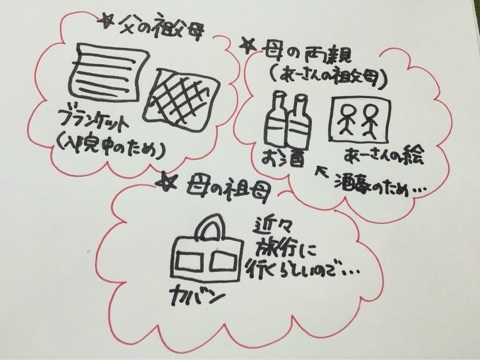 ★父の祖父母
ブランケット
(入院中のため)
★母の両親
(あーさんの祖父母)
お酒
あーさんの絵
↖酒豪のため…
★母の祖母
カバン
近々
旅行に
行くらしいので…